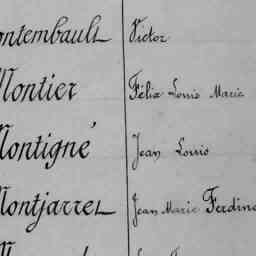 ontembault Victor
Montier Félix Louis Marie
Montigné Jean Louis
Montjarret Jean Marie Ferdin